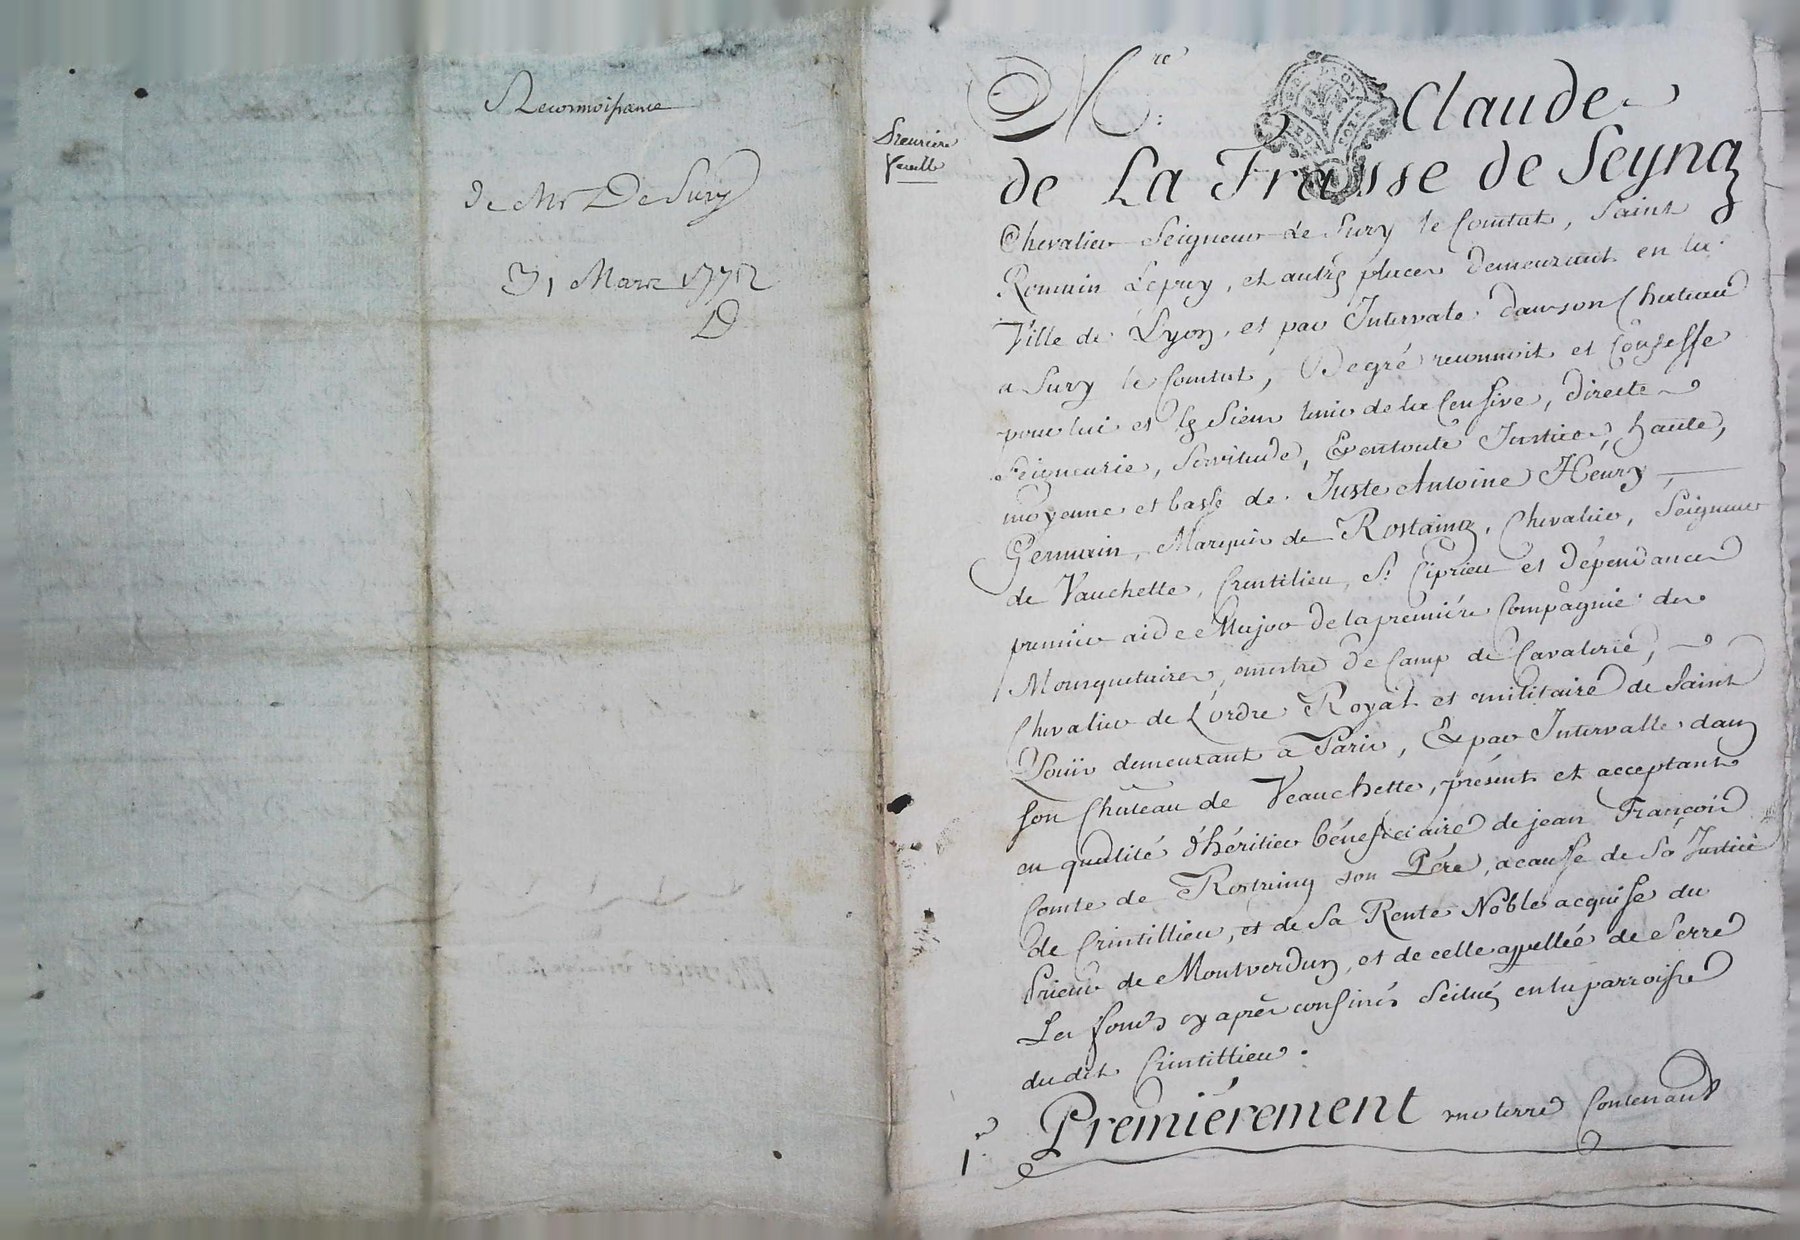 Reconnoissance
de Mr De Sury
31 Mars 1772
D
Premiere
feuille
Mre: Claude
de La Frasse de Seynaz
Chevalier Seigneur de Sury le Comtat, Saint
Romain Lepuy, et autrēs places demeurant en la
Ville de Lyon, et par Intervale dans son Chateau
a Sury le Comtat, Degré reconnoit et Confesse
pour lui et les Siens tenir de la Censive, directe
Seigneurie, Servitude, & en toute Justice, haute,
moyenne et basse de Juste Antoine Henry
Germain, Marquis de Rostaing, Chevalier, Seigneur
de Vauchette, Crintilieu, St Ciprien et dépendances
premier aide Major de la premiére Compagnie des
Mousquetaires, mestre de Camp de Cavalerie,
Chevalier de L'ordre Royal et militaire de Saint
Loüis demeurant a Paris, & par Intervalle dans
son Château de Veauchette, présent et acceptant
en qualité d'héritier bénéficiaire de jean François
Comte de Rostaing son Pére, a cause de Sa Justice
de Crintillieu, et de Sa Rente Noble acquise du
Prieur de Montverdun, et de celle appellée de Serre
Les fonds cy aprés confinés Scitués en la parroisse
du dit Crintillieu.
1r. Premiérement une terre Contenant